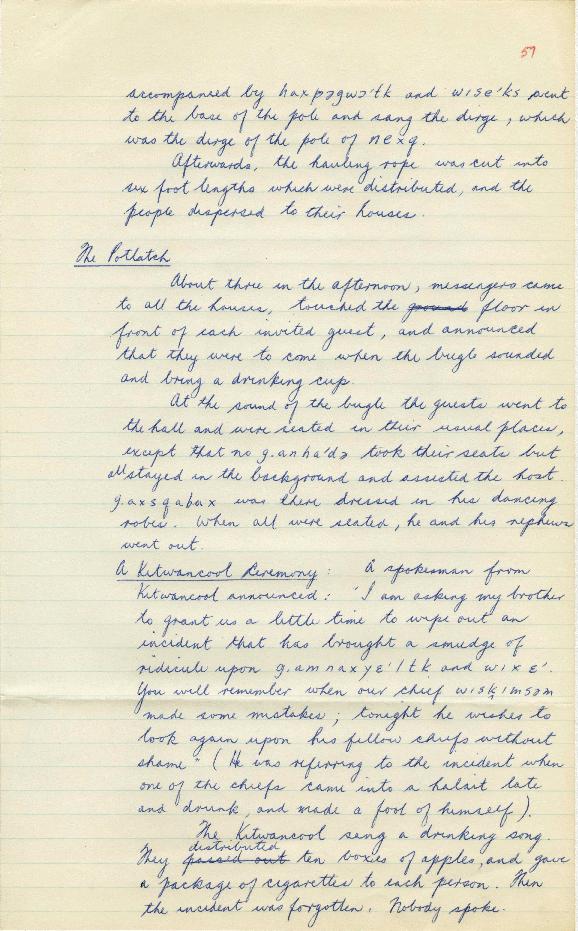 57
accompanied by haxpəgwə'tk and wise'ks went
to the base of the pole and sang the dirge, which
was the dirge of the pole of nexq.
Afterwards, the hauling rope was cut into
six foot lengths which were distributed, and the
people dispersed to their houses.
The Potlatch
About three in the afternoon, messengers came
to all the houses, touched the ground floor in
front of each invited guest, and announced
that they were to come when the bugle sounded
and bring a drinking cup.
At the sound of the bugle the guests went to
the hall and were seated in their usual places,
except that no g.anha'də took their seats but
all stayed in the background and assisted the host.
g.axsgabax was there dressed in his dancing
robes. When all were seated, he and his nephews
went out.
A Kitwancool Ceremony: A spokesman from
Kitwancool announced: 'I am asking my brother
to grant us a little time to wipe out an
incident that has brought a smudge of
ridicule upon g.amnaxyɛ'ltk and wixɛ'.
You will remember when our chief wiskimsəm
made some mistakes; tonight he wishes to
look again upon his fellow chiefs without
shame" (He was referring to the incident when
one of the chiefs came into a halait late
and drunk, and made a fool of himself).
The Kitwancool sang a drinking song.
distributed
They passed out ten boxes of apples, and gave
a package of cigarettes to each person. Then
the incident was forgotten. Nobody spoke.